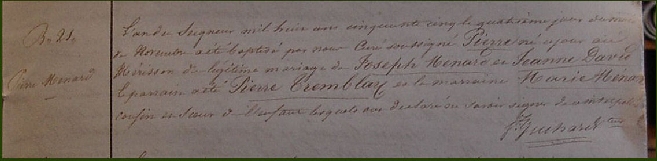 B. 21.
Pierre Menard
L'an du Seigneur mil huit cent cinquante cinq le quatrième jour du mois
de Novembre a été baptisé par nous Curé soussigné Pierre né ce jour au
Hérisson du légitime mariage de Joseph Menard et Jeanne David
Le parrain a été Pierre Tremblay et la marraine Marie Menard
cousin et soeur de l'enfant lesquels ont déclaré ne savoir signer de